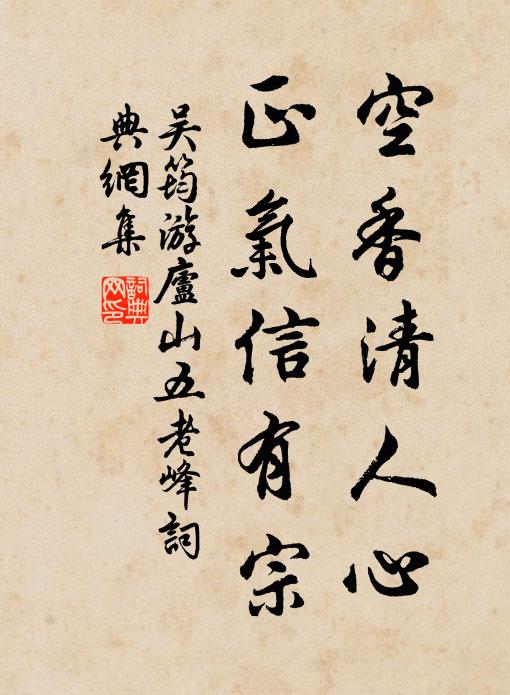 空香清人心
正氣信有宗
吴筠游廬山五老峰詞
典網集
詞典
网印